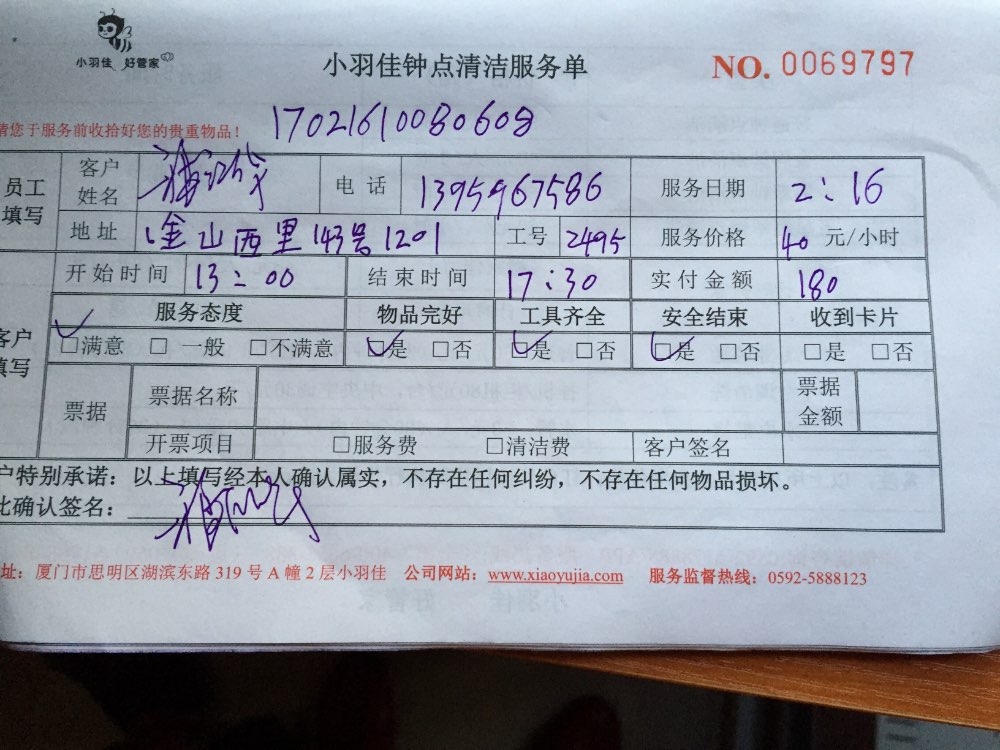 小羽佳 好管家
小羽佳钟点清洁服务单
NO. 0069797
请您于服务前收拾好您的贵重物品！
1702161008060­8
员工填写
客户姓名
电 话 1395967586
服务日期 2:16
地址 金山西里143号1201
工号 2495
服务价格 40 元/小时
开始时间 13:00
结束时间 17:30
实付金额 180
客户填写
服务态度 物品完好 工具齐全 安全结束 收到卡片
□满意 □一般 □不满意 □是 □否 □是 □否 □是 □否 □是 □否
票据
票据名称
票据金额
开票项目 □服务费 □清洁费 客户签名
户特别承诺：以上填写经本人确认属实，不存在任何纠纷，不存在任何物品损坏。
此确认签名：
址：厦门市思明区湖滨东路 319 号 A 幢 2 层小羽佳 公司网站：www.xiaoyujia.com 服务监督热线：0592-5888123